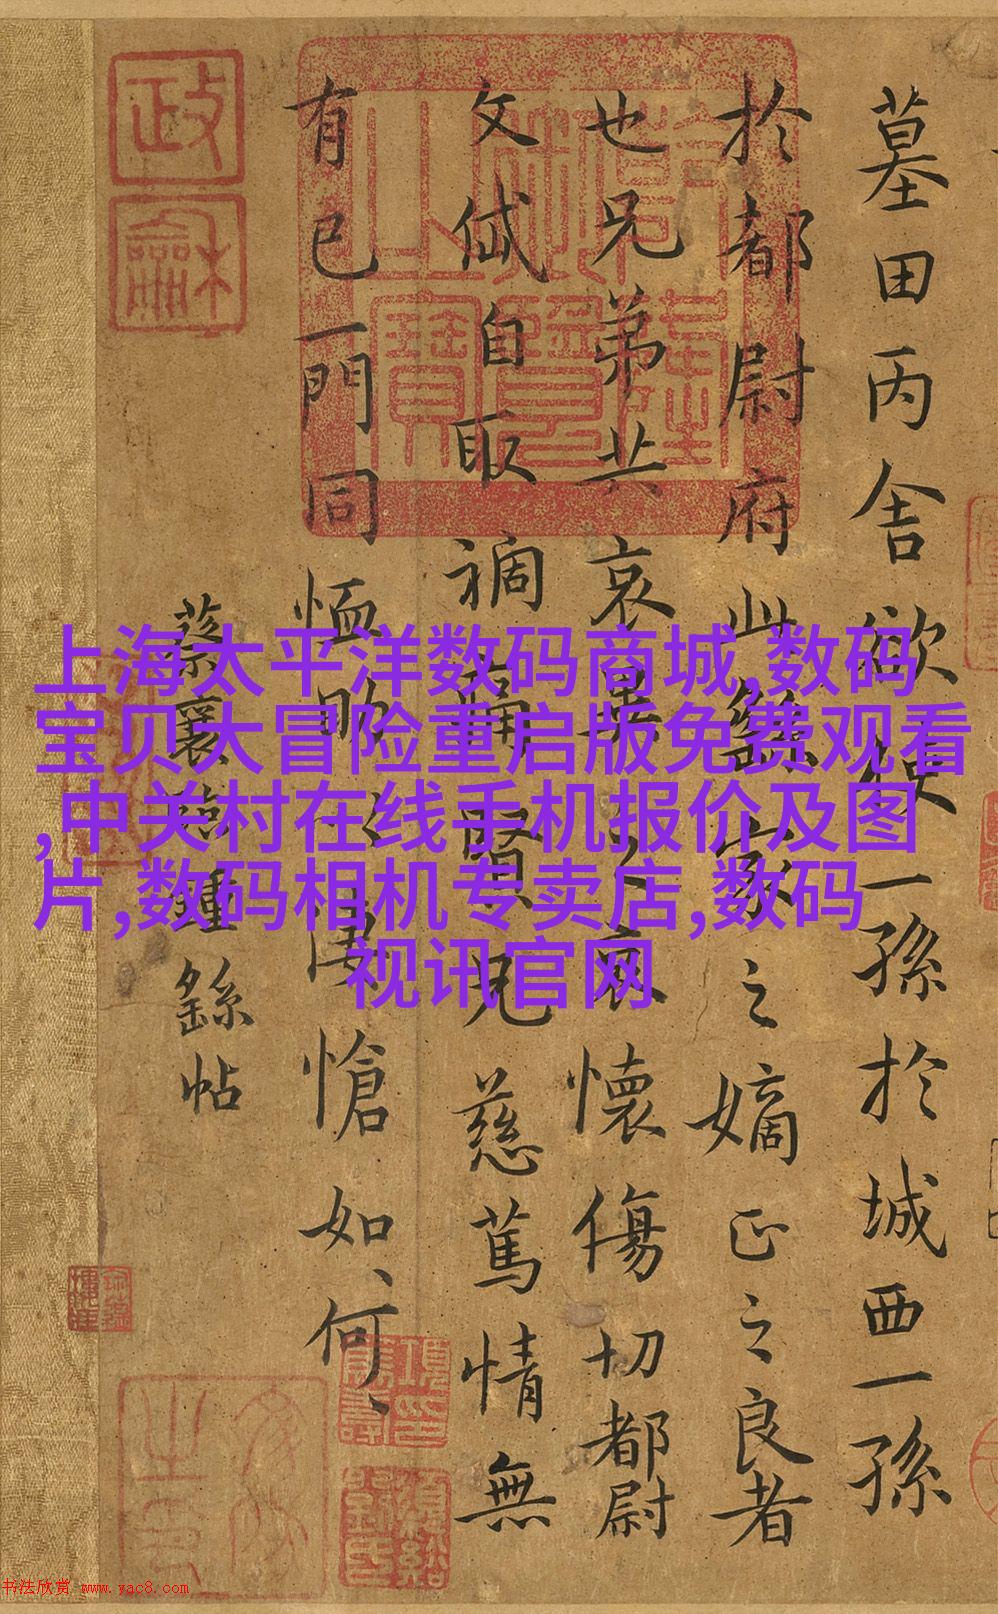 墓田丙舍欲使一孫於城西一孫
於都尉府此繇家之嫡正之良者
也兄弟共哀異之哀懷傷切都尉
文岱自取禍痛賢兄慈篤情無
有已一門同恤助以悽愴如、何、
蔡襄臨鍾繇帖
政龢
上海太平洋数码商城,数码
宝贝大冒险重启版免费观看
,中关村在线手机报价及图
片,数码相机专卖店,数码
视讯官网
书法欣赏 www.yac8.com